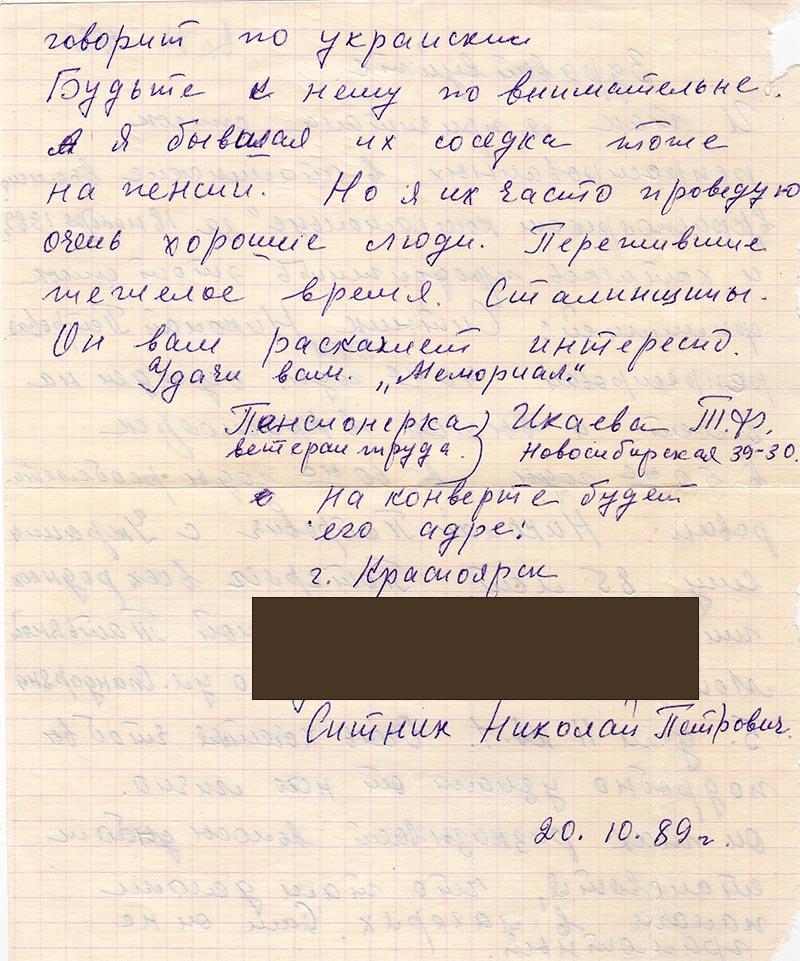 говорит по украиски
Будьте к нему по внимательне.
А Я бывшая их соседка тоже
на пенсии. Но я их часто проведую
очень хорошие люди. Пережившие
тежелое время. Сталинщины.
Он вам раскажет интересно.
Удачи вам. „Мемориал."
Пенсионерка) Икаева Т.Ф.
ветеран труда.) Новосибирская 39-30.
на конверте будет
его адре:
г. Красноярск
Ситник Николай Петрович.
20. 10. 89 г.